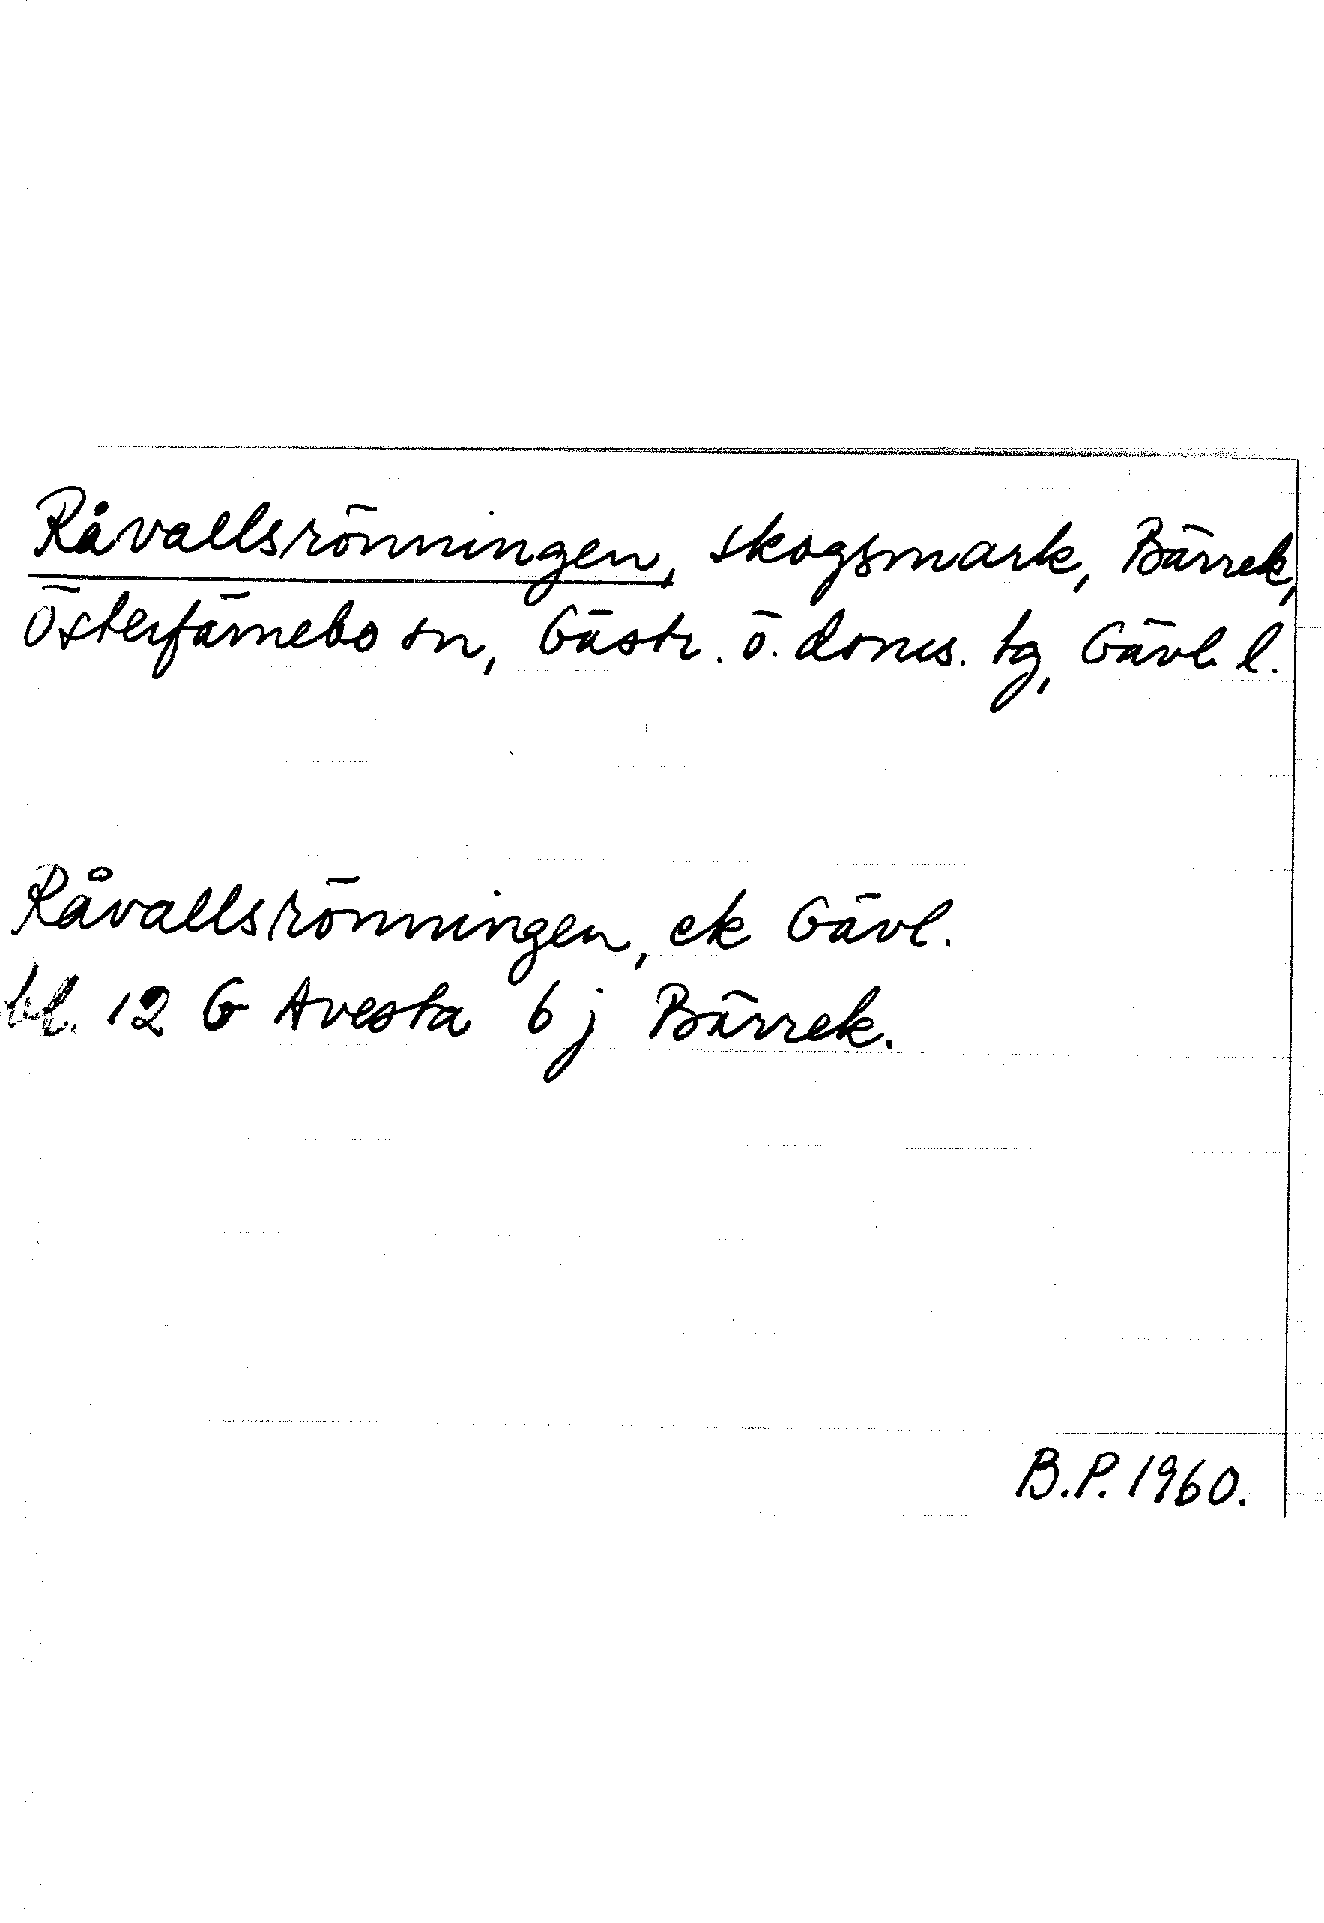 Råvallsrönningen, skogsmark, Bärrek,
Österfärnebo sn, Gästr. ö. doms. tg, Gävl. l.
Råvallsrönningen, ek Gävl.
bl. 12 G Avesta 6 j Bärrek.
B.P. 1960.